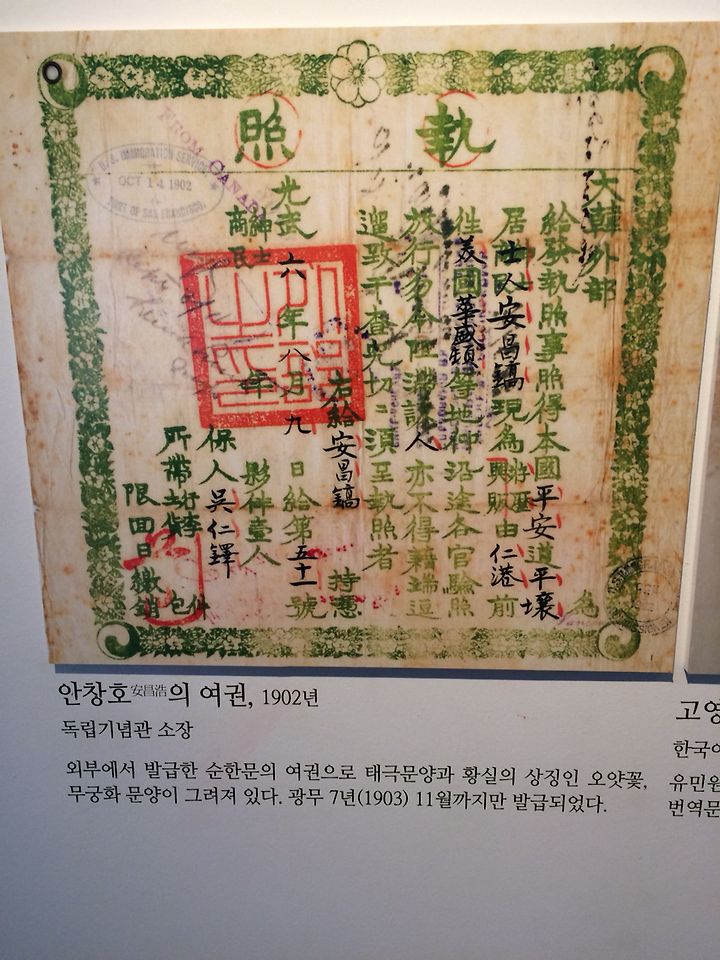 執照
大韓外部
為
給發執照事照得本國平安道平壤
居士人安昌鎬現為由仁港前
美國華盛頓等地仰沿途各官驗照
放行勿令阻滯該人亦不得藉端逗
遛致干查究切〻須至執照者
右給安昌鎬 持憑
光武六年八月九日給第五十一號
紳士
商民
年 夥伴壹人
保人吳仁鐸
所帶行李 包件
限回日繳銷
FROM CANADA
U.S. IMMIGRATION SERVICE
OCT 14 1902
PORT OF SAN FRANCISCO
안창호安昌浩의 여권, 1902년
독립기념관 소장
외부에서 발급한 순한문의 여권으로 태극문양과 황실의 상징인 오얏꽃,
무궁화 문양이 그려져 있다. 광무 7년(1903) 11월까지만 발급되었다.
고영
한국어
유민원
번역문